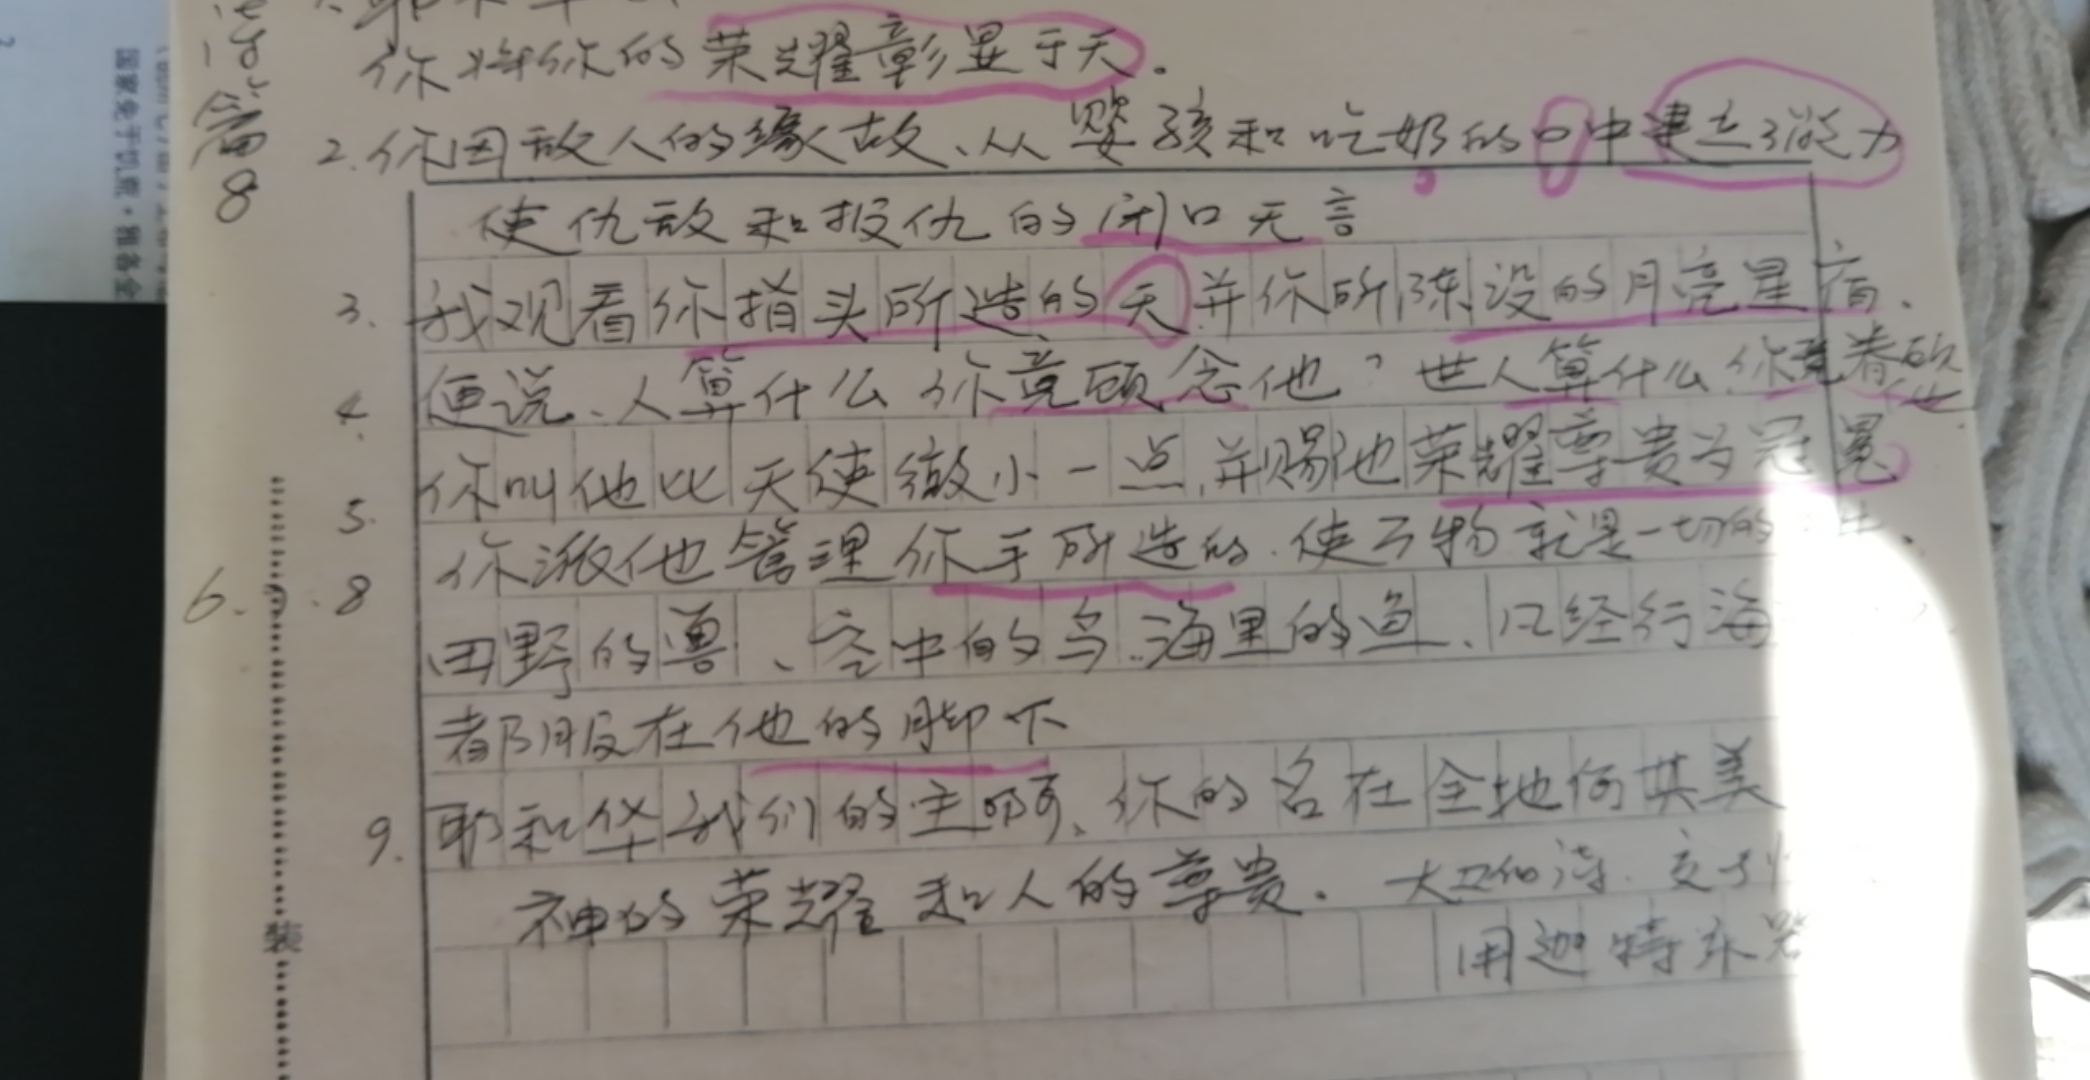 诗篇8
你将你的荣耀彰显于天.
2. 你因敌人的缘故、从婴孩和吃奶的口中建立了能力
使仇敌和报仇的闭口无言
3. 我观看你指头所造的天并你所陈设的月亮星宿.
4. 便说、人算什么 你竟顾念他? 世人算什么 你竟眷顾他
5. 你叫他比天使微小一点,并赐他荣耀尊贵为冠冕
6. 8 你派他管理你手所造的.使万物就是一切的
田野的兽、空中的鸟.海里的鱼、凡经行海
都服在他的脚下
9. 耶和华我们的主啊、你的名在全地何其美
神的荣耀和人的尊贵. 大卫的诗.交于
用迦特乐器